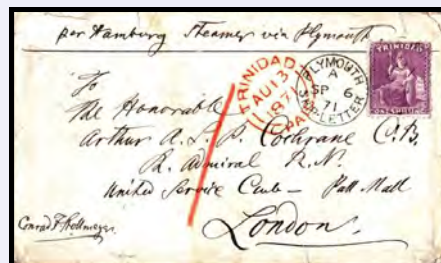 per Hamburg Steamer via Plymouth.
TRINIDAD
AU 13
1871
PAID
PLYMOUTH
A
SP 6
71
SHIP-LETTER
TRINIDAD
ONE SHILLING
To
The Honorable
Arthur A. L. P. Cochrane C.B.
R. Admiral R. N.
United Service Club – Pall Mall
London.
Conrad F. Stollmeyer